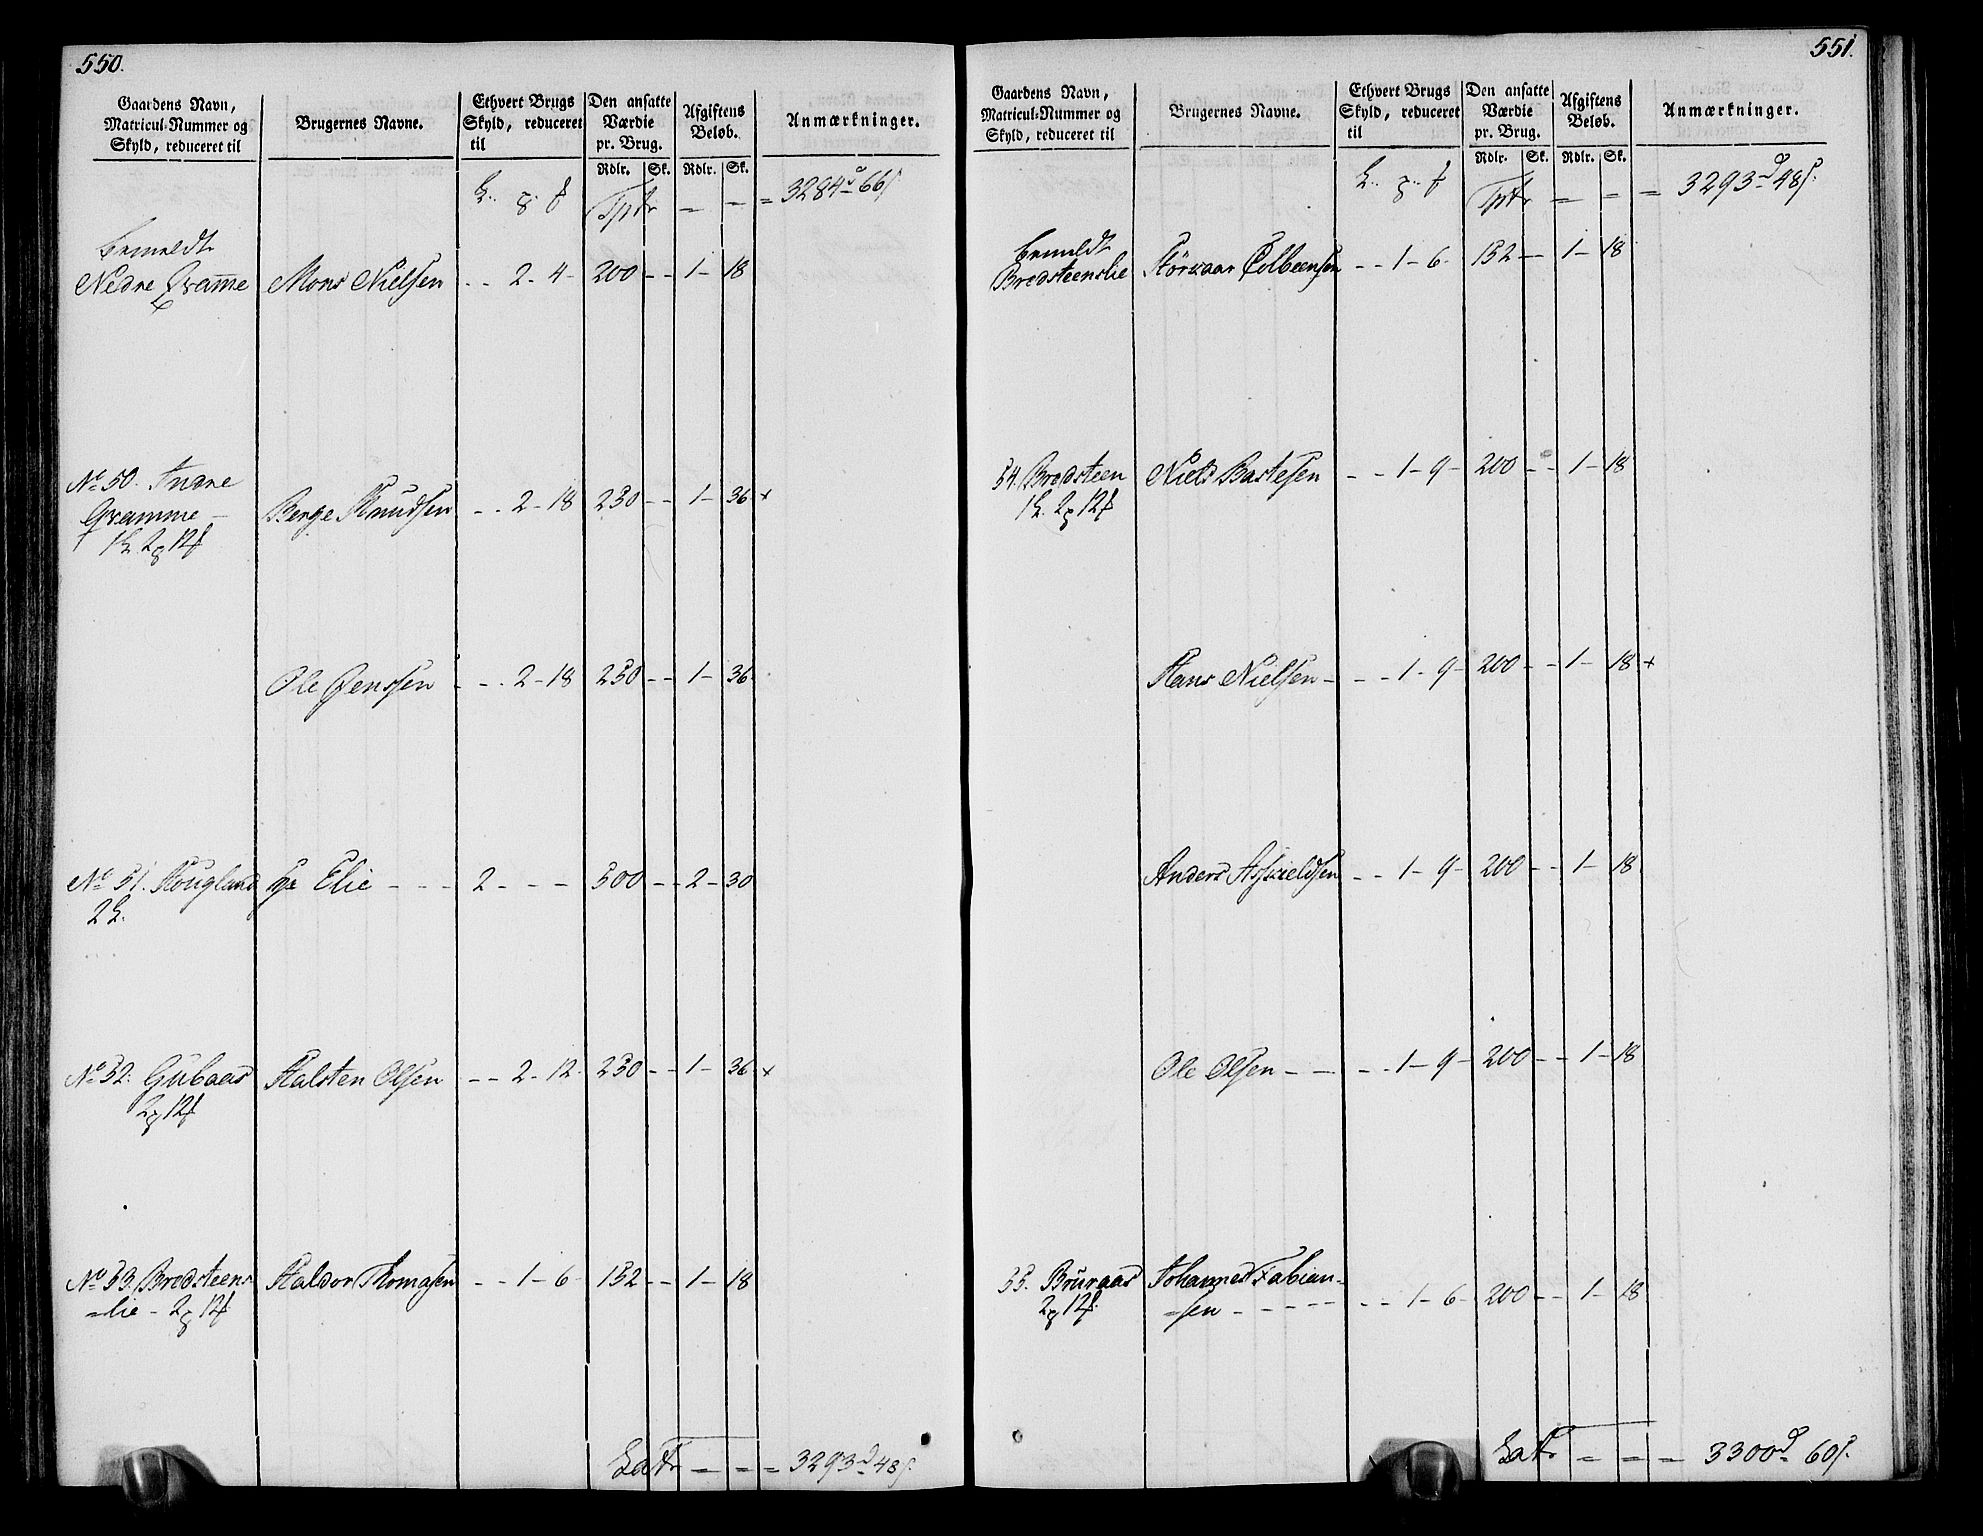 550.
Gaardens Navn,
Matricul-Nummer og
Skyld, reduceret til
Brugernes Navne.
Ethvert Brugs
Skyld, reduceret
til
Den ansatte
Værdie
pr. Brug.
Afgiftens
Beløb.
Anmærkninger.
Rdlr. Sk. Rdlr. Sk.
Tptr — — = 3284 d 66 s.
bemeldt
Nedre Qvamme Mons Nielsen - - 2 - 4 - 200 - - 1 - 18
No 50. Indre
Qvamme - Berge Knudsen - - 2 - 18 250 - - 1 - 36 +
Ole Jenssen - - 2 - 18 250 - - 1 - 36
No 51. Hougland Hr Elie - - - 2 - - - 500 - - 2 - 30
No 52. Gubaas Halsten Olsen - - 2 - 12 250 - - 1 - 36 +
No 53. Bredsteens Haldor Thomasen - - 1 - 6 - 152 - - 1 - 18
=lie -
Latr — — = 3293 d 48 s.
551.
Gaardens Navn,
Matricul-Nummer og
Skyld, reduceret til
Brugernes Navne.
Ethvert Brugs
Skyld, reduceret
til
Den ansatte
Værdie
pr. Brug.
Afgiftens
Beløb.
Anmærkninger.
Rdlr. Sk. Rdlr. Sk.
Tptr = = = 3293 d 48 s.
bemeldt
Bredsteenslie Colbeensen - - 1 - 6 - 152 - - 1 - 18
54. Bredsteen Niels Bastesen - - 1 - 9 - 200 - - 1 - 18
Hans Nielsen - - - 1 - 9 - 200 - - 1 - 18 +
Anders Aschieldsen - - 1 - 9 - 200 - - 1 - 18
Ole Olsen - - - - 1 - 9 - 200 - - 1 - 18
55. Bruraas Johannes Fabian-
=sen - - - - - - 1 - 6 - 200 - - 1 - 18
Latr = = = 3300 d 60 s.